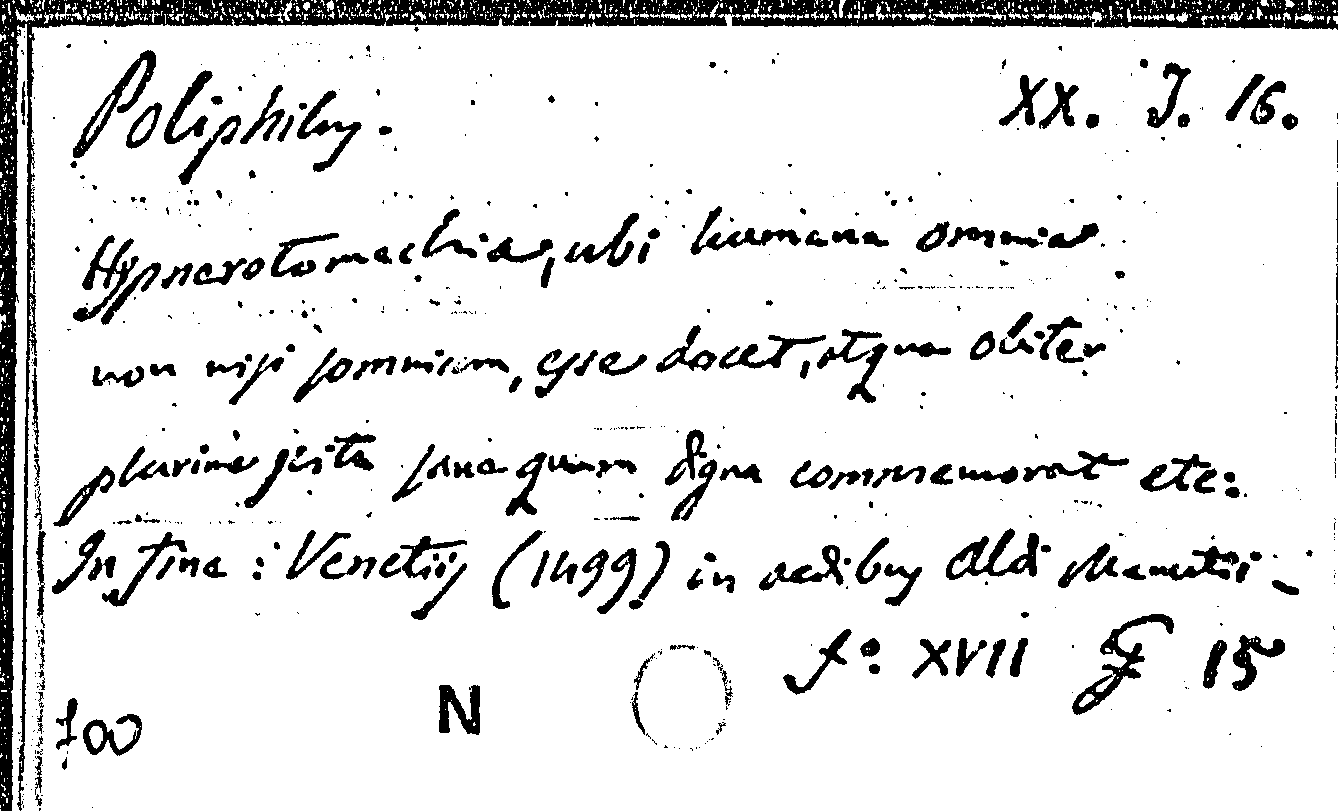 Poliphilus. XX. J. 16.
Hypnerotomachia, ubi humana omnia
non nisi somnium, esse docet, atque obiter
plurima scitu sane quam digna commemorat etc:
In fine: Venetiis (1499) in aedibus Aldi Manutii -
f°: XVII F 15
N